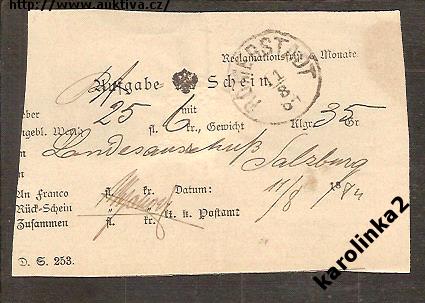 http://www.auktiva.cz/
Reclamationsfrist Monate.
Aufgabe Schein.
RÖMERSTADT
11/8
eber 25 mit
ngebl. Werth fl. 6 kr., Gewicht Klgr. 35 Gr
an Landesausschuß Salzburg
An Franco fl. kr. Datum: 11/8 1884
Rück-Schein " " k. k. Postamt
Zusammen fl. kr.
D. S. 253.
karolinka2